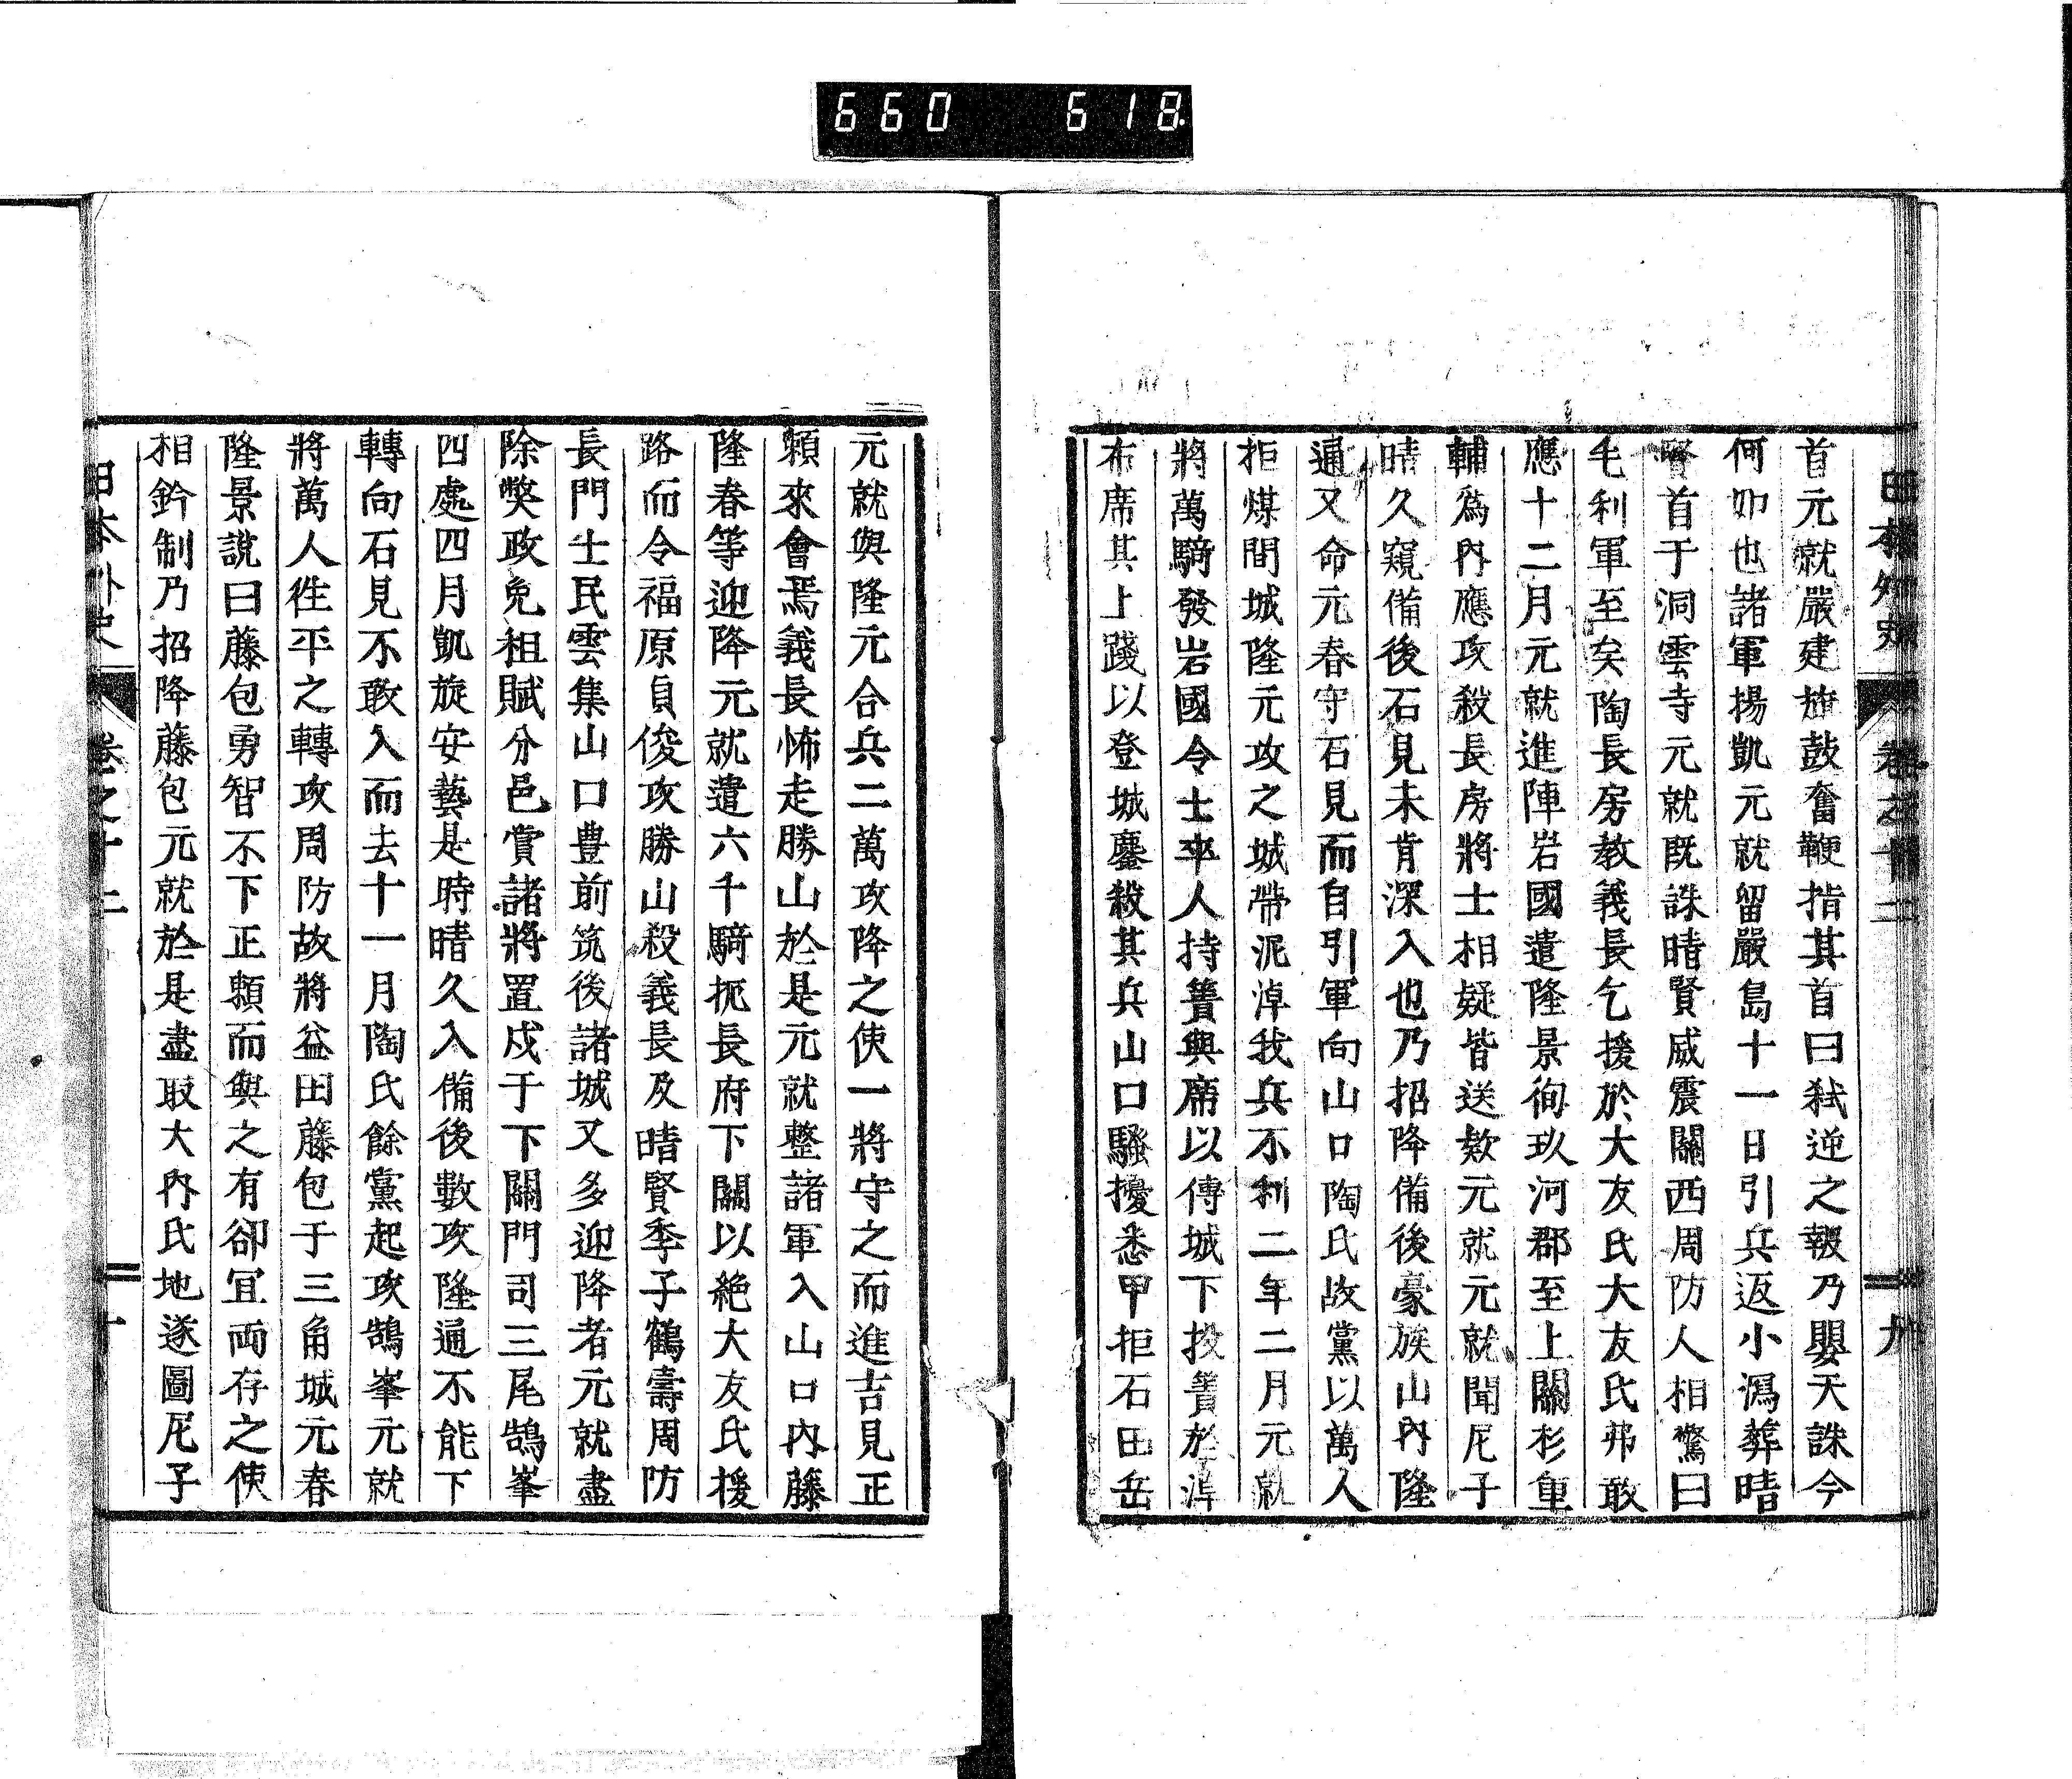 660 618
日本外史 卷之十二 九
首元就嚴建旗鼓奮鞭指其首曰弑逆之報乃嬰天誅今
何如也諸軍揚凱元就留嚴島十一日引兵返小瀉葬晴
賢首于洞雲寺元就既誅晴賢威震關西周防人相驚曰
毛利軍至矣陶長房教義長乞援於大友氏大友氏弗敢
應十二月元就進陣岩國遣隆景徇玖河郡至上關杉重
輔爲內應攻殺長房將士相疑皆送欵元就元就聞尼子
晴久窺備後石見未肯深入也乃招降備後豪族山內隆
通又命元春守石見而自引軍向山口陶氏故黨以萬人
拒煤間城隆元攻之城帶泥淖我兵不利二年二月元就
將萬騎發岩國令士卒人持簀與席以傳城下投簀於淖
布席其上踐以登城鏖殺其兵山口騷擾悉甲拒石田岳
元就與隆元合兵二萬攻降之使一將守之而進吉見正
賴來會焉義長怖走勝山於是元就整諸軍入山口內藤
隆春等迎降元就遣六千騎扼長府下關以絕大友氏援
路而令福原貞俊攻勝山殺義長及晴賢季子鶴壽周防
長門士民雲集山口豊前筑後諸城又多迎降者元就盡
除獘政免租賦分邑賞諸將置戍于下關門司三尾鵠峯
四處四月凱旋安藝是時晴久入備後數攻隆通不能下
轉向石見不敢入而去十一月陶氏餘黨起攻鵠峯元就
將萬人徃平之轉攻周防故將益田藤包于三角城元春
隆景說曰藤包勇智不下正賴而與之有卻宜兩存之使
相鈐制乃招降藤包元就於是盡取大內氏地遂圖尼子
日本外史 卷之十二 十